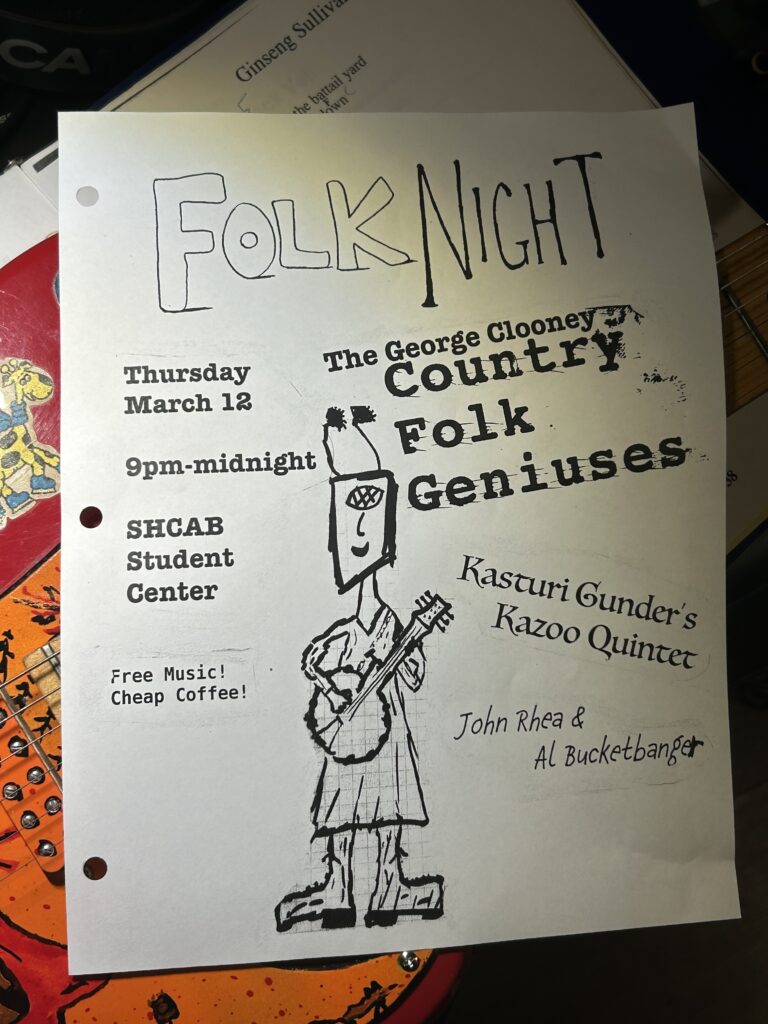 CA
Ginseng Sullivan
the battail yard
down
FOLK NIGHT
Thursday
March 12
9pm-midnight
SHCAB
Student
Center
Free Music!
Cheap Coffee!
The George Clooney
Country
Folk
Geniuses
Kasturi Gunder's
Kazoo Quintet
John Rhea &
Al Bucketbanger